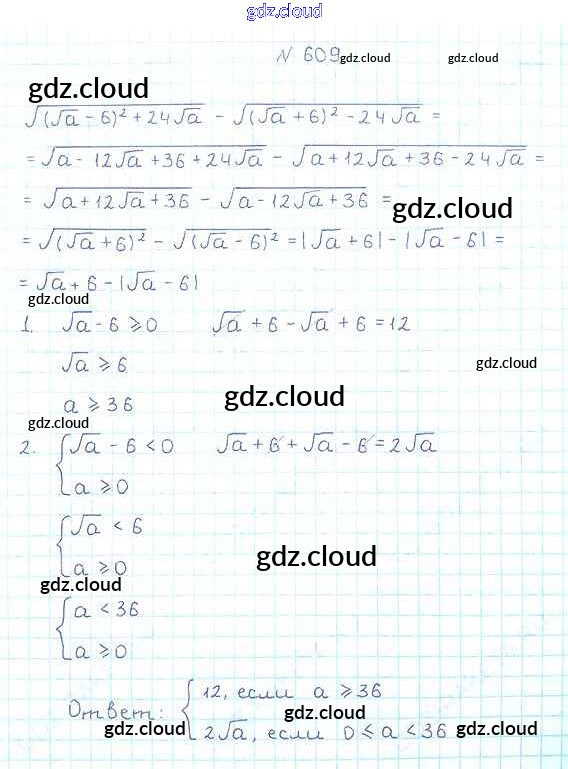 gdz.cloud
N 609 gdz.cloud gdz.cloud
gdz.cloud
√((√a - 6)² + 24√a) - √((√a + 6)² - 24√a) =
= √(a - 12√a + 36 + 24√a) - √(a + 12√a + 36 - 24√a) =
= √(a + 12√a + 36) - √(a - 12√a + 36) =
gdz.cloud
= √((√a + 6)²) - √((√a - 6)²) = |√a + 6| - |√a - 6| =
= √a + 6 - |√a - 6|
gdz.cloud
1. √a - 6 ⩾ 0 √a + 6 - √a + 6 = 12
√a ⩾ 6 gdz.cloud
a ⩾ 36 gdz.cloud
gdz.cloud
2. { √a - 6 < 0 √a + 6 + √a - 6 = 2√a
a ⩾ 0
{ √a < 6
gdz.cloud
a ⩾ 0
gdz.cloud
{ a < 36
a ⩾ 0
Ответ: { 12, если a ⩾ 36
gdz.cloud
gdz.cloud 2√a, если 0 ⩽ a < 36 gdz.cloud